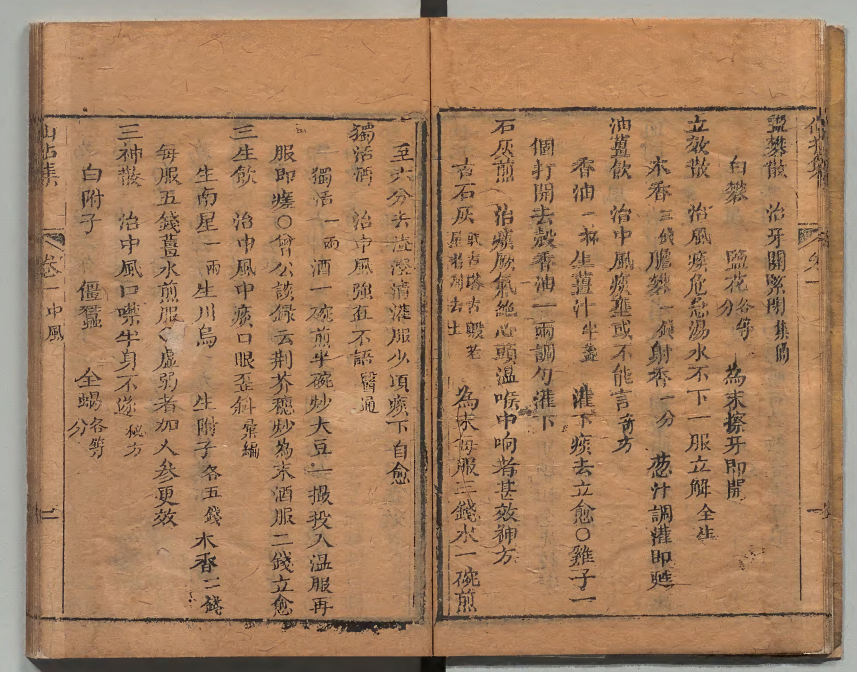 鹽礬散 治牙關緊閉 集簡
白礬 鹽花 各等分 為末擦牙即開
立效散 治風痰危急湯水不下一服立解 全生
木香 三錢 膽礬 一錢 射香 一分 葱汁調灌即甦
油薑飲 治中風痰壅或不能言 奇方
香油 一杯 生薑汁 半盞 灌下痰去立愈〇雞子一
個打開去殼香油一兩調勻灌下
石灰煎 治痰厥氣絶心頭溫喉中响者甚效 神方
古石灰 為末每服三錢水一碗煎
至六分去渣澄清灌服少頃痰下自愈
獨活酒 治中風強直不語 醫通
獨活 一兩 酒一碗煎半碗炒大豆一撮投入溫服再
服即瘥〇曾公談録云荆芥穗炒為末酒服二錢立愈
三生飲 治中風中痰口眼歪斜 彙編
生南星 一兩 生川烏 生附子 各五錢 木香 二錢
每服五錢薑水煎服〇虛弱者加人參更效
三神散 治中風口噤半身不遂 秘方
白附子 僵蠶 全蝎 各等分
卷一 中風 二